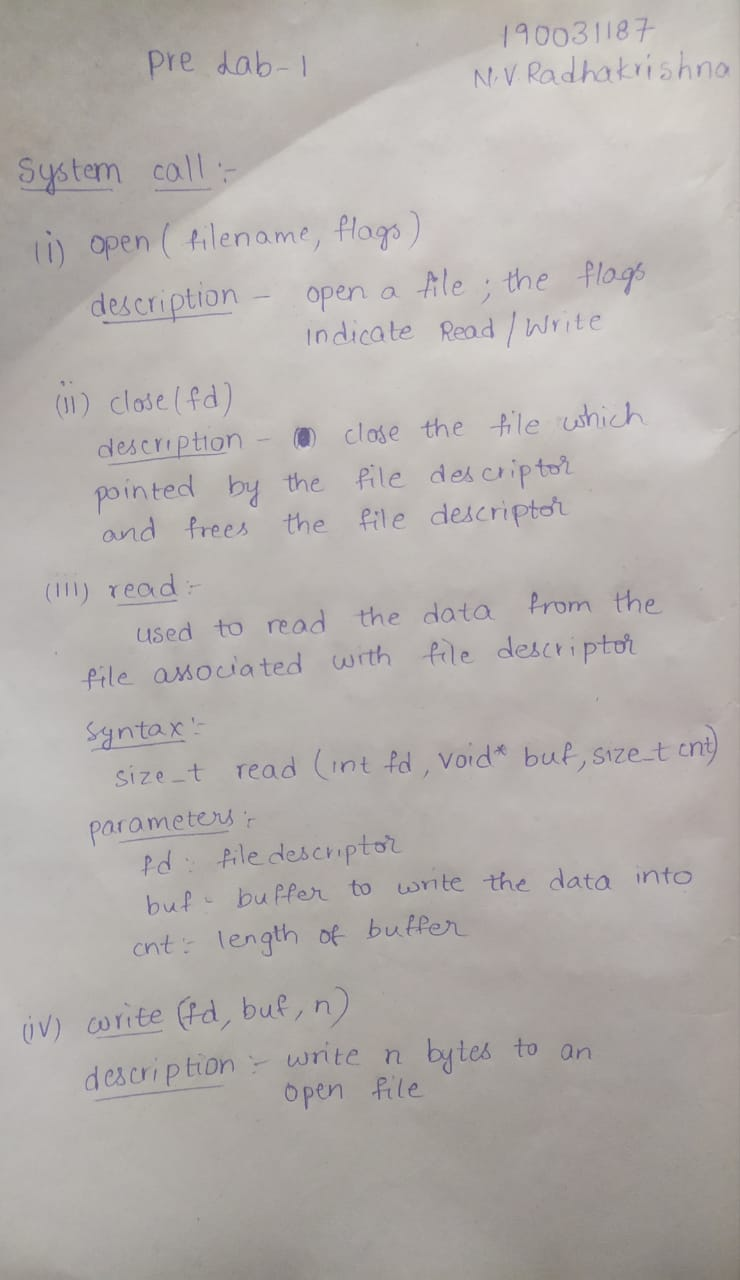 190031187
Pre Lab-1
N.V.Radhakrishna
System call :-
(i) open ( filename, flags )
description - open a file ; the flags
indicate Read / Write
(ii) close (fd)
description - close the file which
pointed by the file descriptor
and frees the file descriptor
(iii) read :-
used to read the data from the
file associated with file descriptor
Syntax :-
size_t read (int fd, void* buf, size_t cnt)
parameters :-
fd : file descriptor
buf - buffer to write the data into
cnt :- length of buffer
(iv) write (fd, buf, n)
description :- write n bytes to an
open file